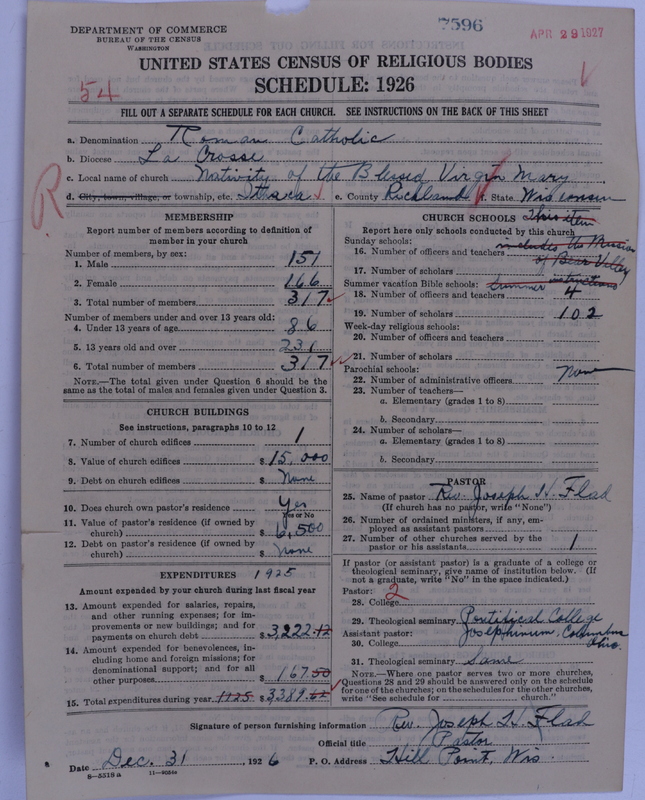 DEPARTMENT OF COMMERCE
BUREAU OF THE CENSUS
WASHINGTON
7596
APR 29 1927
UNITED STATES CENSUS OF RELIGIOUS BODIES
SCHEDULE: 1926
54
FILL OUT A SEPARATE SCHEDULE FOR EACH CHURCH. SEE INSTRUCTIONS ON THE BACK OF THIS SHEET
a. Denomination Roman Catholic
b. Diocese La Crosse
c. Local name of church Nativity of the Blessed Virgin Mary
R
d. City, town, village, or township, etc. Ithaca e. County Richland f. State Wisconsin
MEMBERSHIP
Report number of members according to definition of
member in your church
Number of members, by sex:
1. Male 151
2. Female 166
3. Total number of members 317
Number of members under and over 13 years old:
4. Under 13 years of age 86
5. 13 years old and over 231
6. Total number of members 317
NOTE.—The total given under Question 6 should be the
same as the total of males and females given under Question 3.
CHURCH BUILDINGS
See instructions, paragraphs 10 to 12
7. Number of church edifices 1
8. Value of church edifices $ 15,000
9. Debt on church edifices $ None
10. Does church own pastor's residence Yes
Yes or No
11. Value of pastor's residence (if owned by
church) $ 6,500
12. Debt on pastor's residence (if owned by
church) $ None
EXPENDITURES 1925
Amount expended by your church during last fiscal year
13. Amount expended for salaries, repairs,
and other running expenses; for im-
provements or new buildings; and for
payments on church debt $ 3,222.12
14. Amount expended for benevolences, in-
cluding home and foreign missions; for
denominational support; and for all
other purposes $ 167.50
15. Total expenditures during year 1925 $ 3389.62
CHURCH SCHOOLS This item
Report here only schools conducted by this church
Sunday schools: includes the Mission
16. Number of officers and teachers of Bear Valley
17. Number of scholars
Summer vacation Bible schools: Summer instructions
18. Number of officers and teachers 4
19. Number of scholars 102
Week-day religious schools:
20. Number of officers and teachers
21. Number of scholars
Parochial schools:
22. Number of administrative officers None
23. Number of teachers—
a. Elementary (grades 1 to 8)
b. Secondary
24. Number of scholars—
a. Elementary (grades 1 to 8)
b. Secondary
PASTOR
25. Name of pastor Rev. Joseph H. Flad
(If church has no pastor, write "None")
26. Number of ordained ministers, if any, em-
ployed as assistant pastors
27. Number of other churches served by the
pastor or his assistants 1
If pastor (or assistant pastor) is a graduate of a college or
theological seminary, give name of institution below. (If
not a graduate, write "No" in the space indicated.)
Pastor: 2
28. College
29. Theological seminary Pontifical College
Assistant pastor: Josephinum, Columbus
30. College Ohio.
31. Theological seminary Same
NOTE.—Where one pastor serves two or more churches,
Questions 28 and 29 should be answered only on the schedule
for one of the churches; on the schedules for the other churches,
write "See schedule for ........ church."
Signature of person furnishing information Rev. Joseph H. Flad
Official title Pastor
Date Dec. 31, 1926 P. O. Address Hill Point, Wis.
8—5518 a